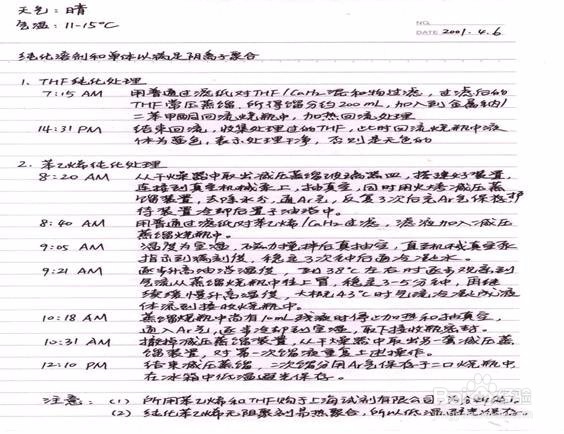 天气：晴
气温：11-15℃
NO.
DATE 2001.4.6
纯化溶剂和单体以满足阴离子聚合
1. THF纯化处理
7:15 AM 用普通过滤纸对THF/CaH2混和物过滤，过滤后的
THF常压蒸馏，所得馏分约200mL，加入到金属钠/
二苯甲酮回流烧瓶中，加热回流处理
14:31 PM 结束回流，收集处理过的THF，此时回流烧瓶中液
体为蓝色，表示处理干净，否则是无色的
2. 苯乙烯纯化处理
8:20 AM 从干燥器中取出减压蒸馏玻璃器皿，搭建好装置，
连接到真空机械泵上，抽真空，同时用火烤减压蒸
馏装置，去除水分，通Ar气，反复3次后充Ar气保护
待装置冷却后置于油浴中。
8:40 AM 用普通过滤纸对苯乙烯/CaH2过滤，滤液加入减压
蒸馏烧瓶中。
9:05 AM 温度为室温，磁力搅拌后真抽空，真空机械真空表
指示到满刻度，稳定3次钟后通冷凝水。
9:21 AM 逐步升高油浴温度，到38℃左右时逐步观察到
气流从蒸馏烧瓶中往上冒，稳定3-5分钟，再继
续缓慢升高温度，大概在43℃时气流冷凝成液
体流到接收烧瓶中。
10:18 AM 蒸馏烧瓶中尚有10mL残液时停止加热和抽真空，
通入Ar气，逐步冷却到室温，取下接收瓶密封。
10:31 AM 撤掉减压蒸馏装置，从干燥器中取出另一套减压蒸
馏装置，对第一次馏液重复上述操作。
12:10 PM 结束减压蒸馏，二次馏分用Ar气保存于二口烧瓶中
在冰箱中低温避光保存。
注意：(1) 所用苯乙烯和THF购于上海试剂有限公司，
(2) 纯化苯乙烯无阻聚剂易热聚合，所以低温避光保存。
Baidu经验